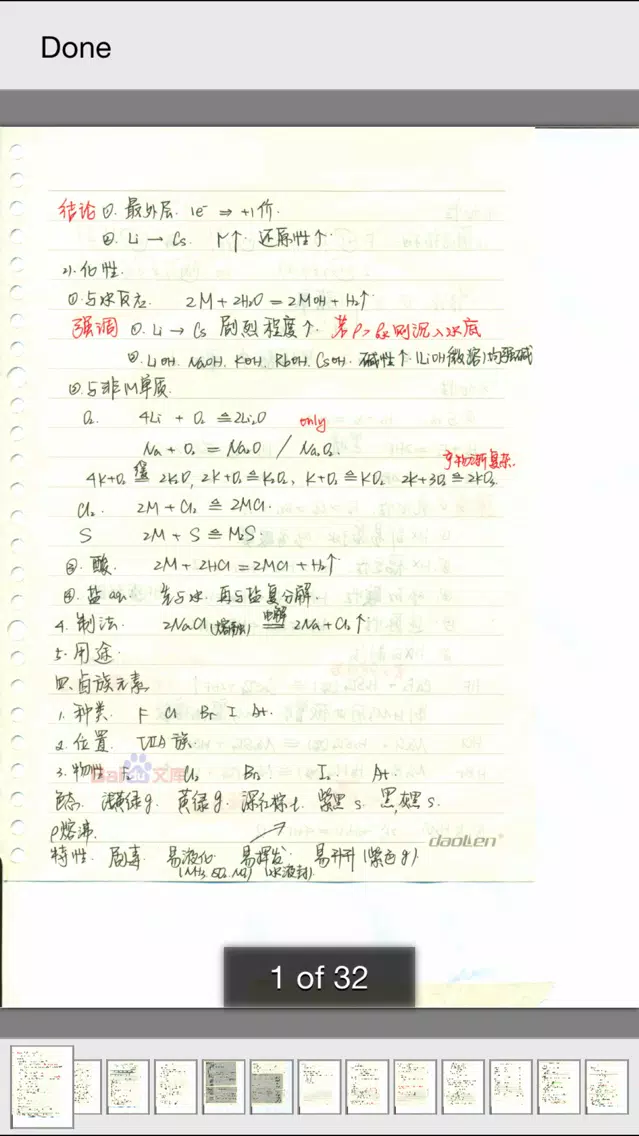 Done
结论 ①. 最外层. 1e⁻ ⇒ +1价.
②. Li → Cs. M↑. 还原性↑.
2). 化性.
①. 与水反应. 2M + 2H₂O = 2MOH + H₂↑.
强调 ①. Li → Cs 剧烈程度↑. 若ρ>ρ水则沉入水底
②. LiOH. NaOH. KOH. RbOH. CsOH. 碱性↑ (LiOH微溶) 均强碱
②. 与非M单质.
O₂. 4Li + O₂ ≜ 2Li₂O only
Na + O₂ = Na₂O / Na₂O₂.
4K+O₂ 缓 2K₂O, 2K+O₂≜K₂O₂, K+O₂≜KO₂ 2K+3O₂≜2KO₃. 产物渐复杂.
Cl₂. 2M + Cl₂ ≜ 2MCl.
S 2M + S ≜ M₂S
③. 酸. 2M + 2HCl = 2MCl + H₂↑
④. 盐aq. 先与水. 再与盐复分解.
4. 制法. 2NaCl(熔融) 电解 2Na + Cl₂↑
5. 用途.
四. 卤族元素.
1. 种类. F Cl Br I At.
2. 位置. ⅦA 族.
3. 物性 F₂ Cl₂ Br₂ I₂ At.
Baidu 文库
色态. 浅黄绿g. 黄绿g. 深红棕l. 紫黑s. 黑 s.
ρ熔沸.
特性. 剧毒. 易液化. 易挥发. 易升升 (紫色g).
(水液封).
daoLen
1 of 32